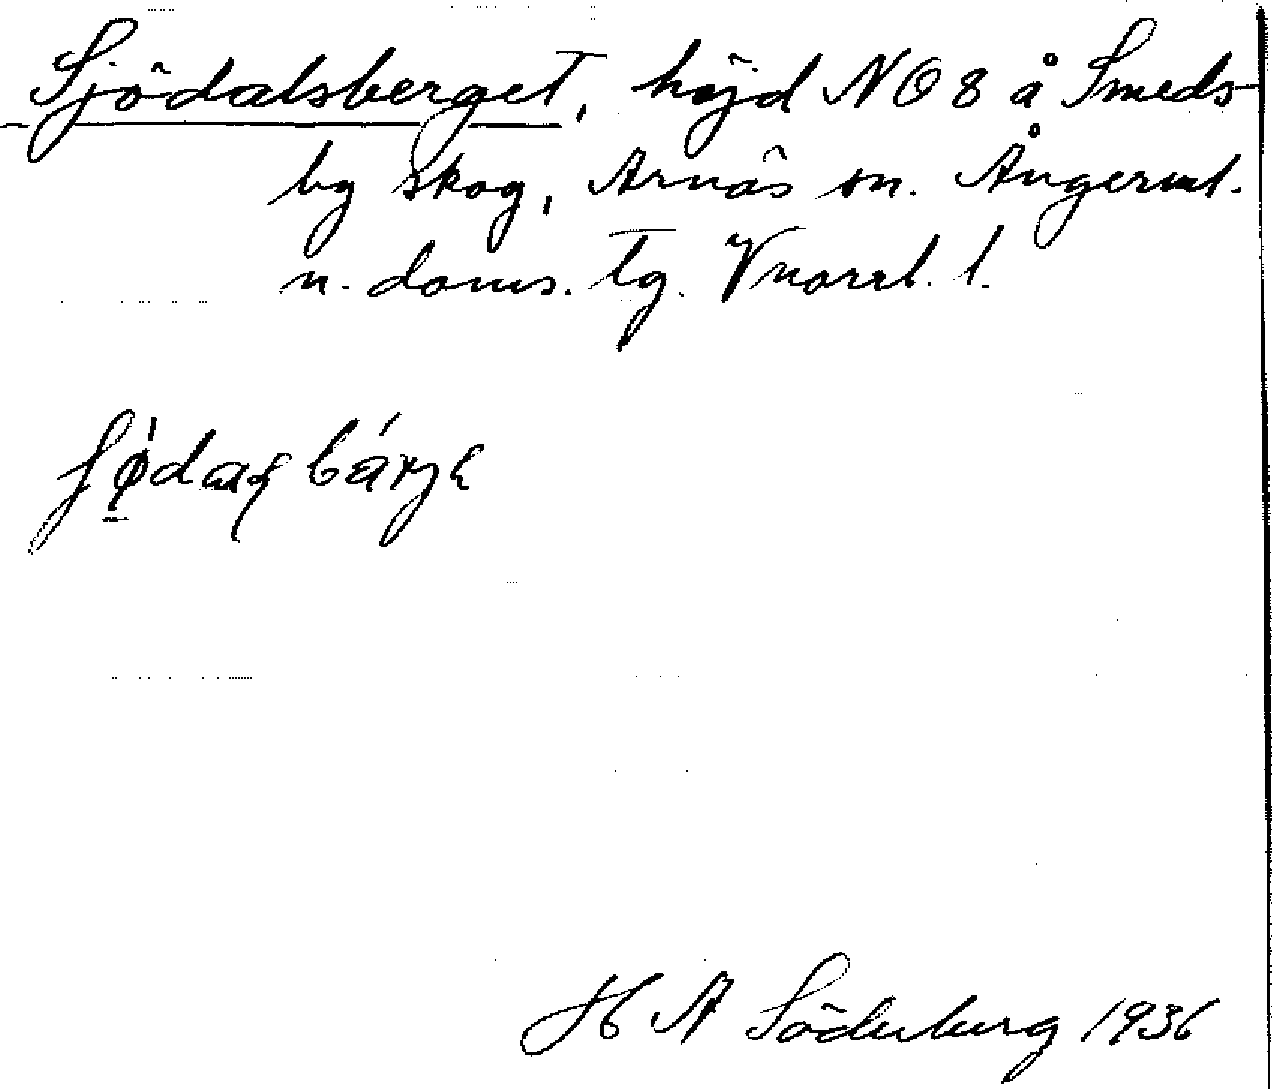 Sjödalsberget, höjd NO 8 å Smeds-
by skog, Arnäs sn. Ångerml.
n. doms. tg. Vnorrl. l.
H A Söderberg 1936